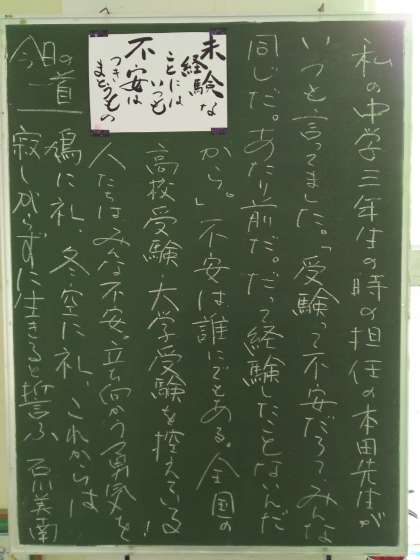 未験な
経験
ことには
いつも
不安は
つき
まとうもの
私の中学三年生の時の担任の本田先生が
いつも言ってました。「受験って不安だろう。みんな
同じだ。あたり前だ。だって経験したことないんだ
から。」不安は、誰にでもある。全国の
高校受験・大学受験を控えている
人たちはみんな不安。立ち向かう勇気を!
今日の一首
鳩に礼、冬空に礼、これからは
寂しがらずに生きると誓ふ 石川美南